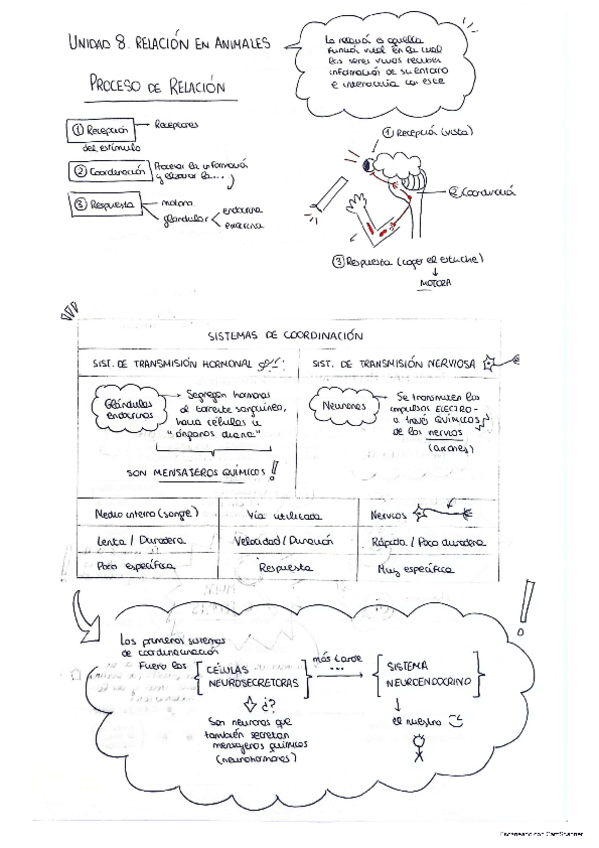 UNIDAD 8. RELACIÓN EN ANIMALES
La relación es aquella
función vital en la cual
los seres vivos reciben
información de su entorno
e interactúa con este
PROCESO DE RELACIÓN
① Recepción → Receptores
del estímulo
② Coordinación Procesar la información
y elaborar la...
③ Respuesta motora
glandular endocrina
exocrina
① Recepción (vista)
② Coordinación
③ Respuesta (coger el estuche)
↓
MOTORA
SISTEMAS DE COORDINACIÓN
SIST. DE TRANSMISIÓN HORMONAL
SIST. DE TRANSMISIÓN NERVIOSA
Glándulas
endocrinas
→ Segregan hormonas
al torrente sanguíneo,
hacia células u
"órganos diana"
SON MENSAJEROS QUÍMICOS!
Neuronas
→ Se transmiten los
impulsos ELECTRO-
QUÍMICOS
a través
de los nervios
(axones)
Medio interno (sangre) Vía utilizada Nervios
Lenta / Duradera Velocidad / Duración Rápida / Poco duradera
Poco específica Respuesta Muy específica
Los primeros sistemas
de coordinación
Fuero las [CÉLULAS
NEUROSECRETORAS]
más tarde
...
[SISTEMA
NEUROENDOCRINO]
¿?
Son neuronas que
también secretan
mensajeros químicos
(neurohormonas)
↓
el nuestro
Escaneado con CamScanner